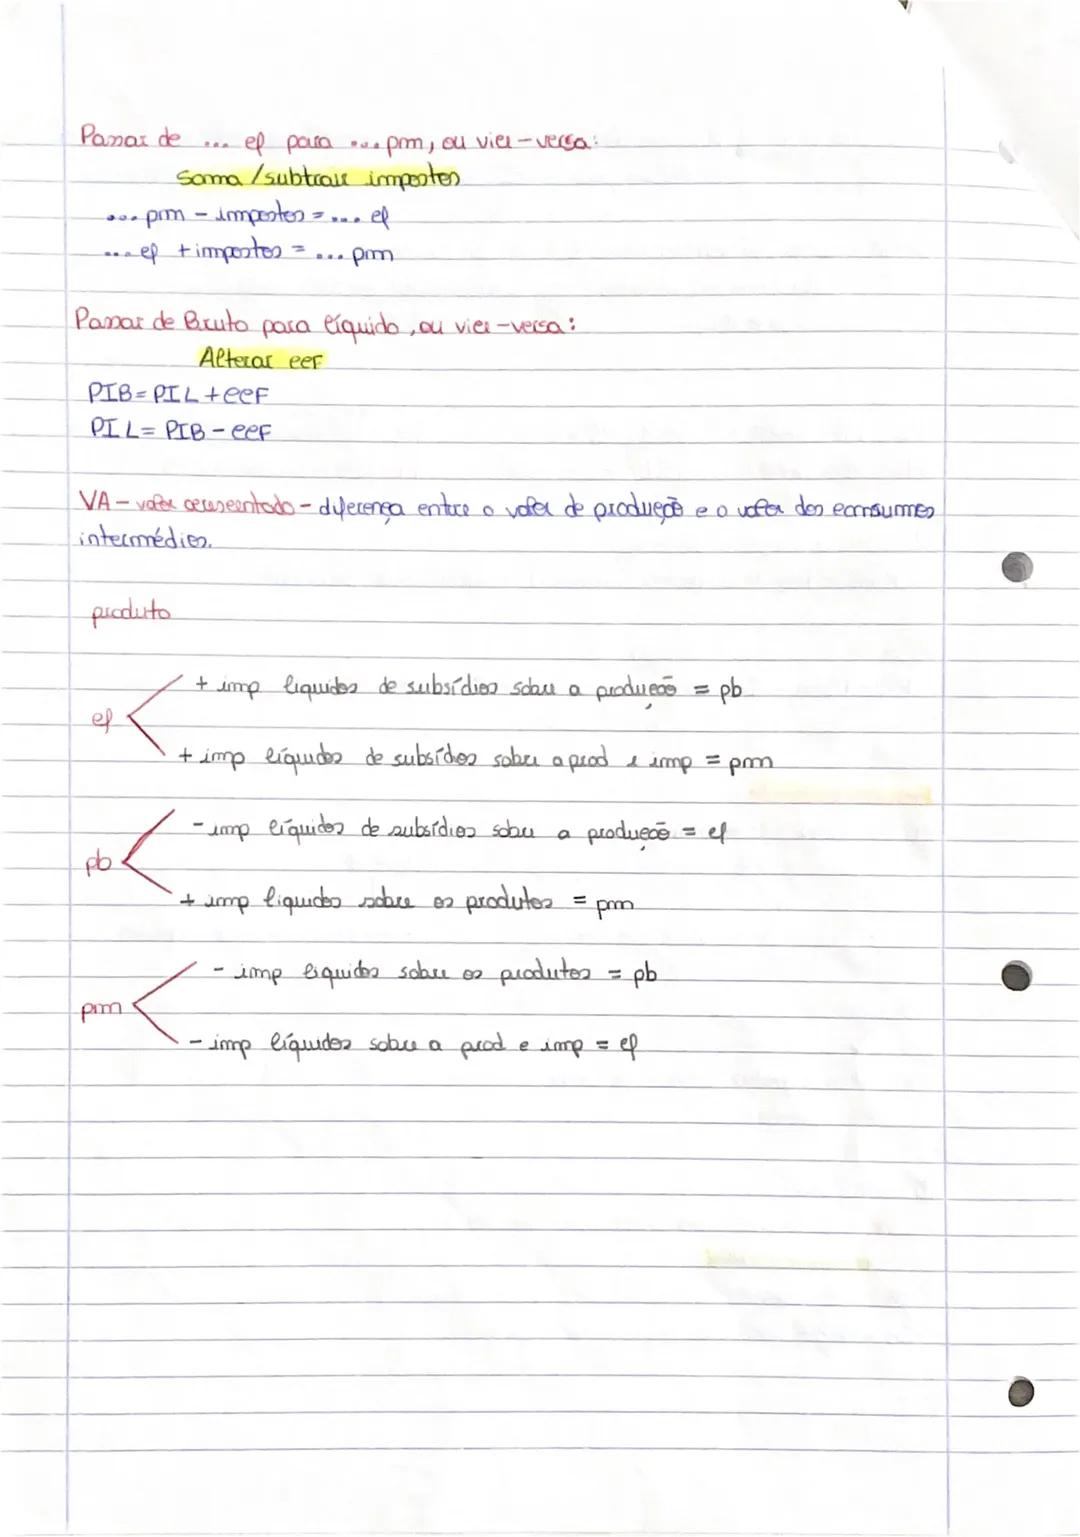 Passar de ... cf para ...pm, ou vice-versa:
Soma /subtrair impostos
... pm - impostos = ... cf
... cf + impostos = ... pm
Passar de Bruto para líquido, ou vice-versa:
Alterar ccf
PIB = PIL + ccf
PIL = PIB - ccf
VA - valor acrescentado - diferença entre o valor de produção e o valor dos consumos
intermédios.
produto
+ imp liquidos de subsídios sobre a produção = pb
cf
+ imp líquidos de subsídos sobre a prod e imp = pm
- imp líquidos de subsídios sobre a produção = cf
pb
+ imp liquidos sobre os produtos = pm
- imp liquidos sobre os produtos = pb
pm
- imp líquidos sobre a prod e imp = cf